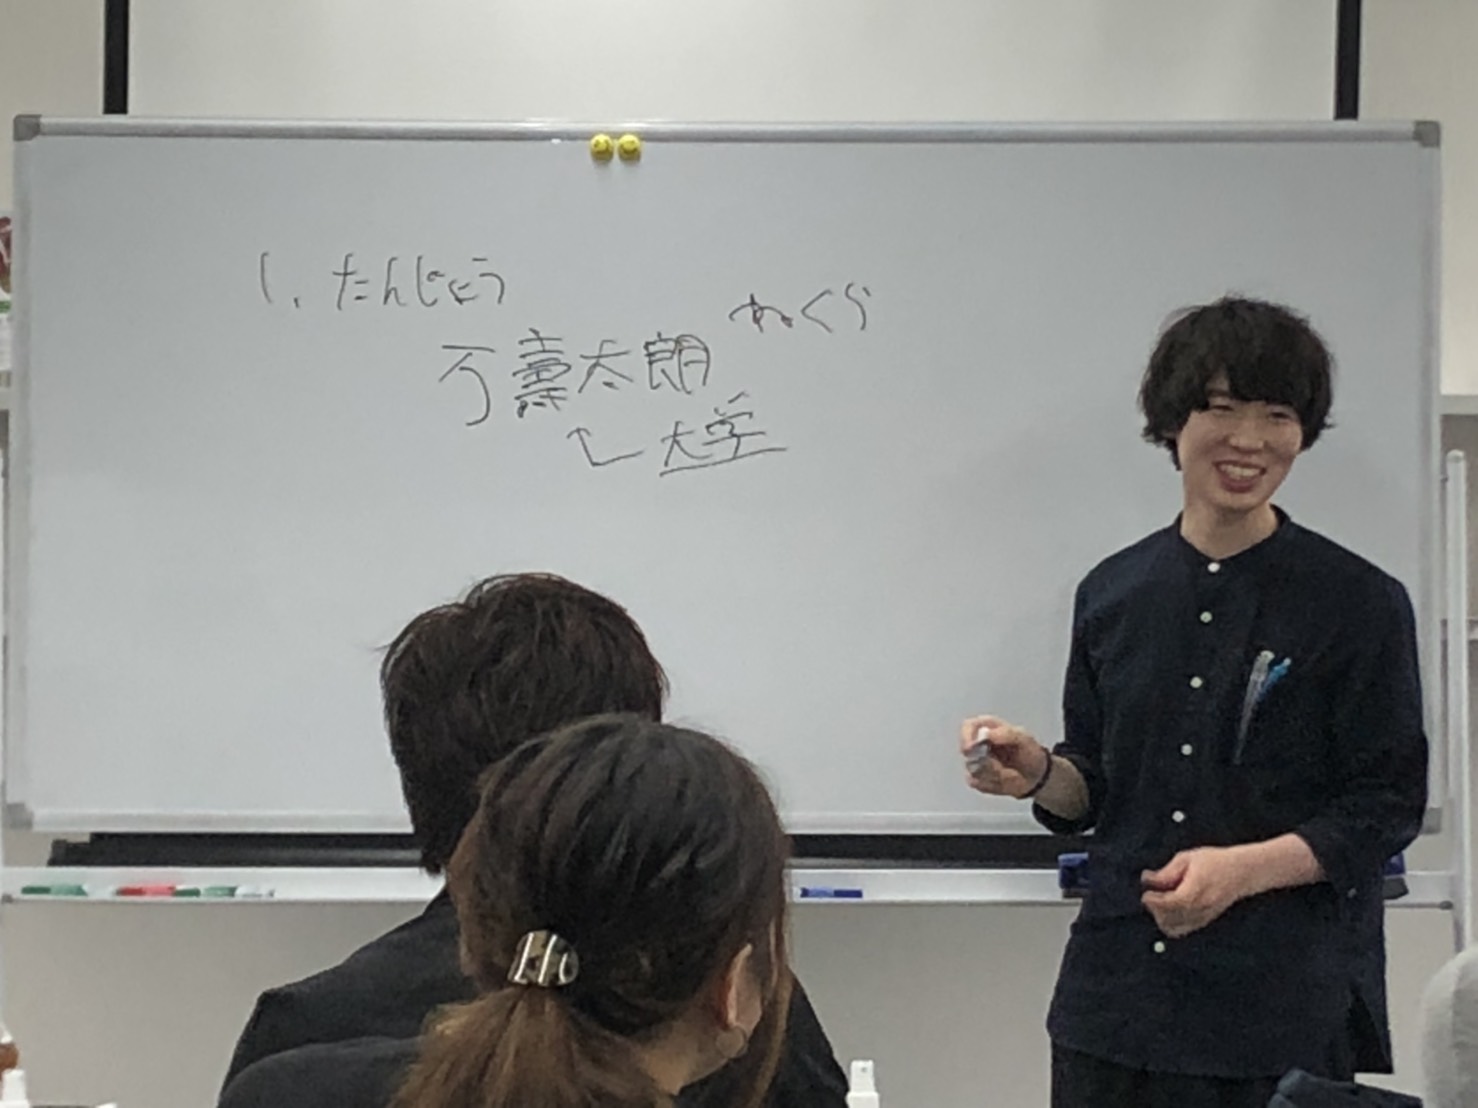 1. たんじょう
万壽太朗
ねくら
大学